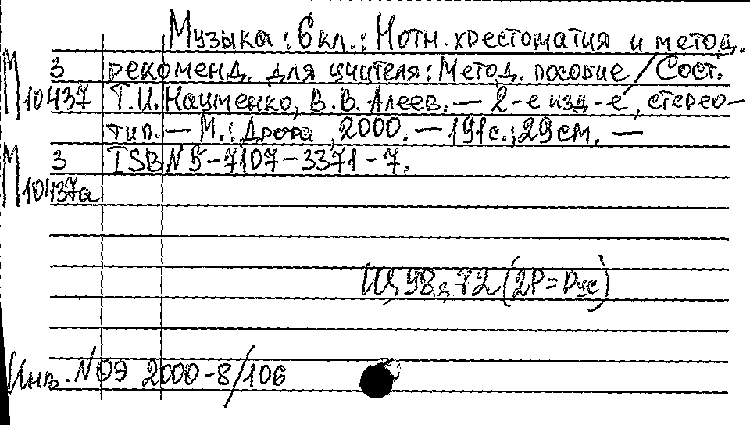 Музыка: 6 кл.: Нотн. хрестоматия и метод.
З рекоменд. для учителя: Метод. пособие / Сост.
М 10437 Т.И. Науменко, В.В. Алеев. — 2-е изд-е, стерео-
тип. — М.: Дрофа, 2000. — 191с.; 29см. —
М З ISBN 5-7107-3371-7.
10437а
Щ98я72(2Р=Рус)
Инв. № ОЭ 2000-8/106